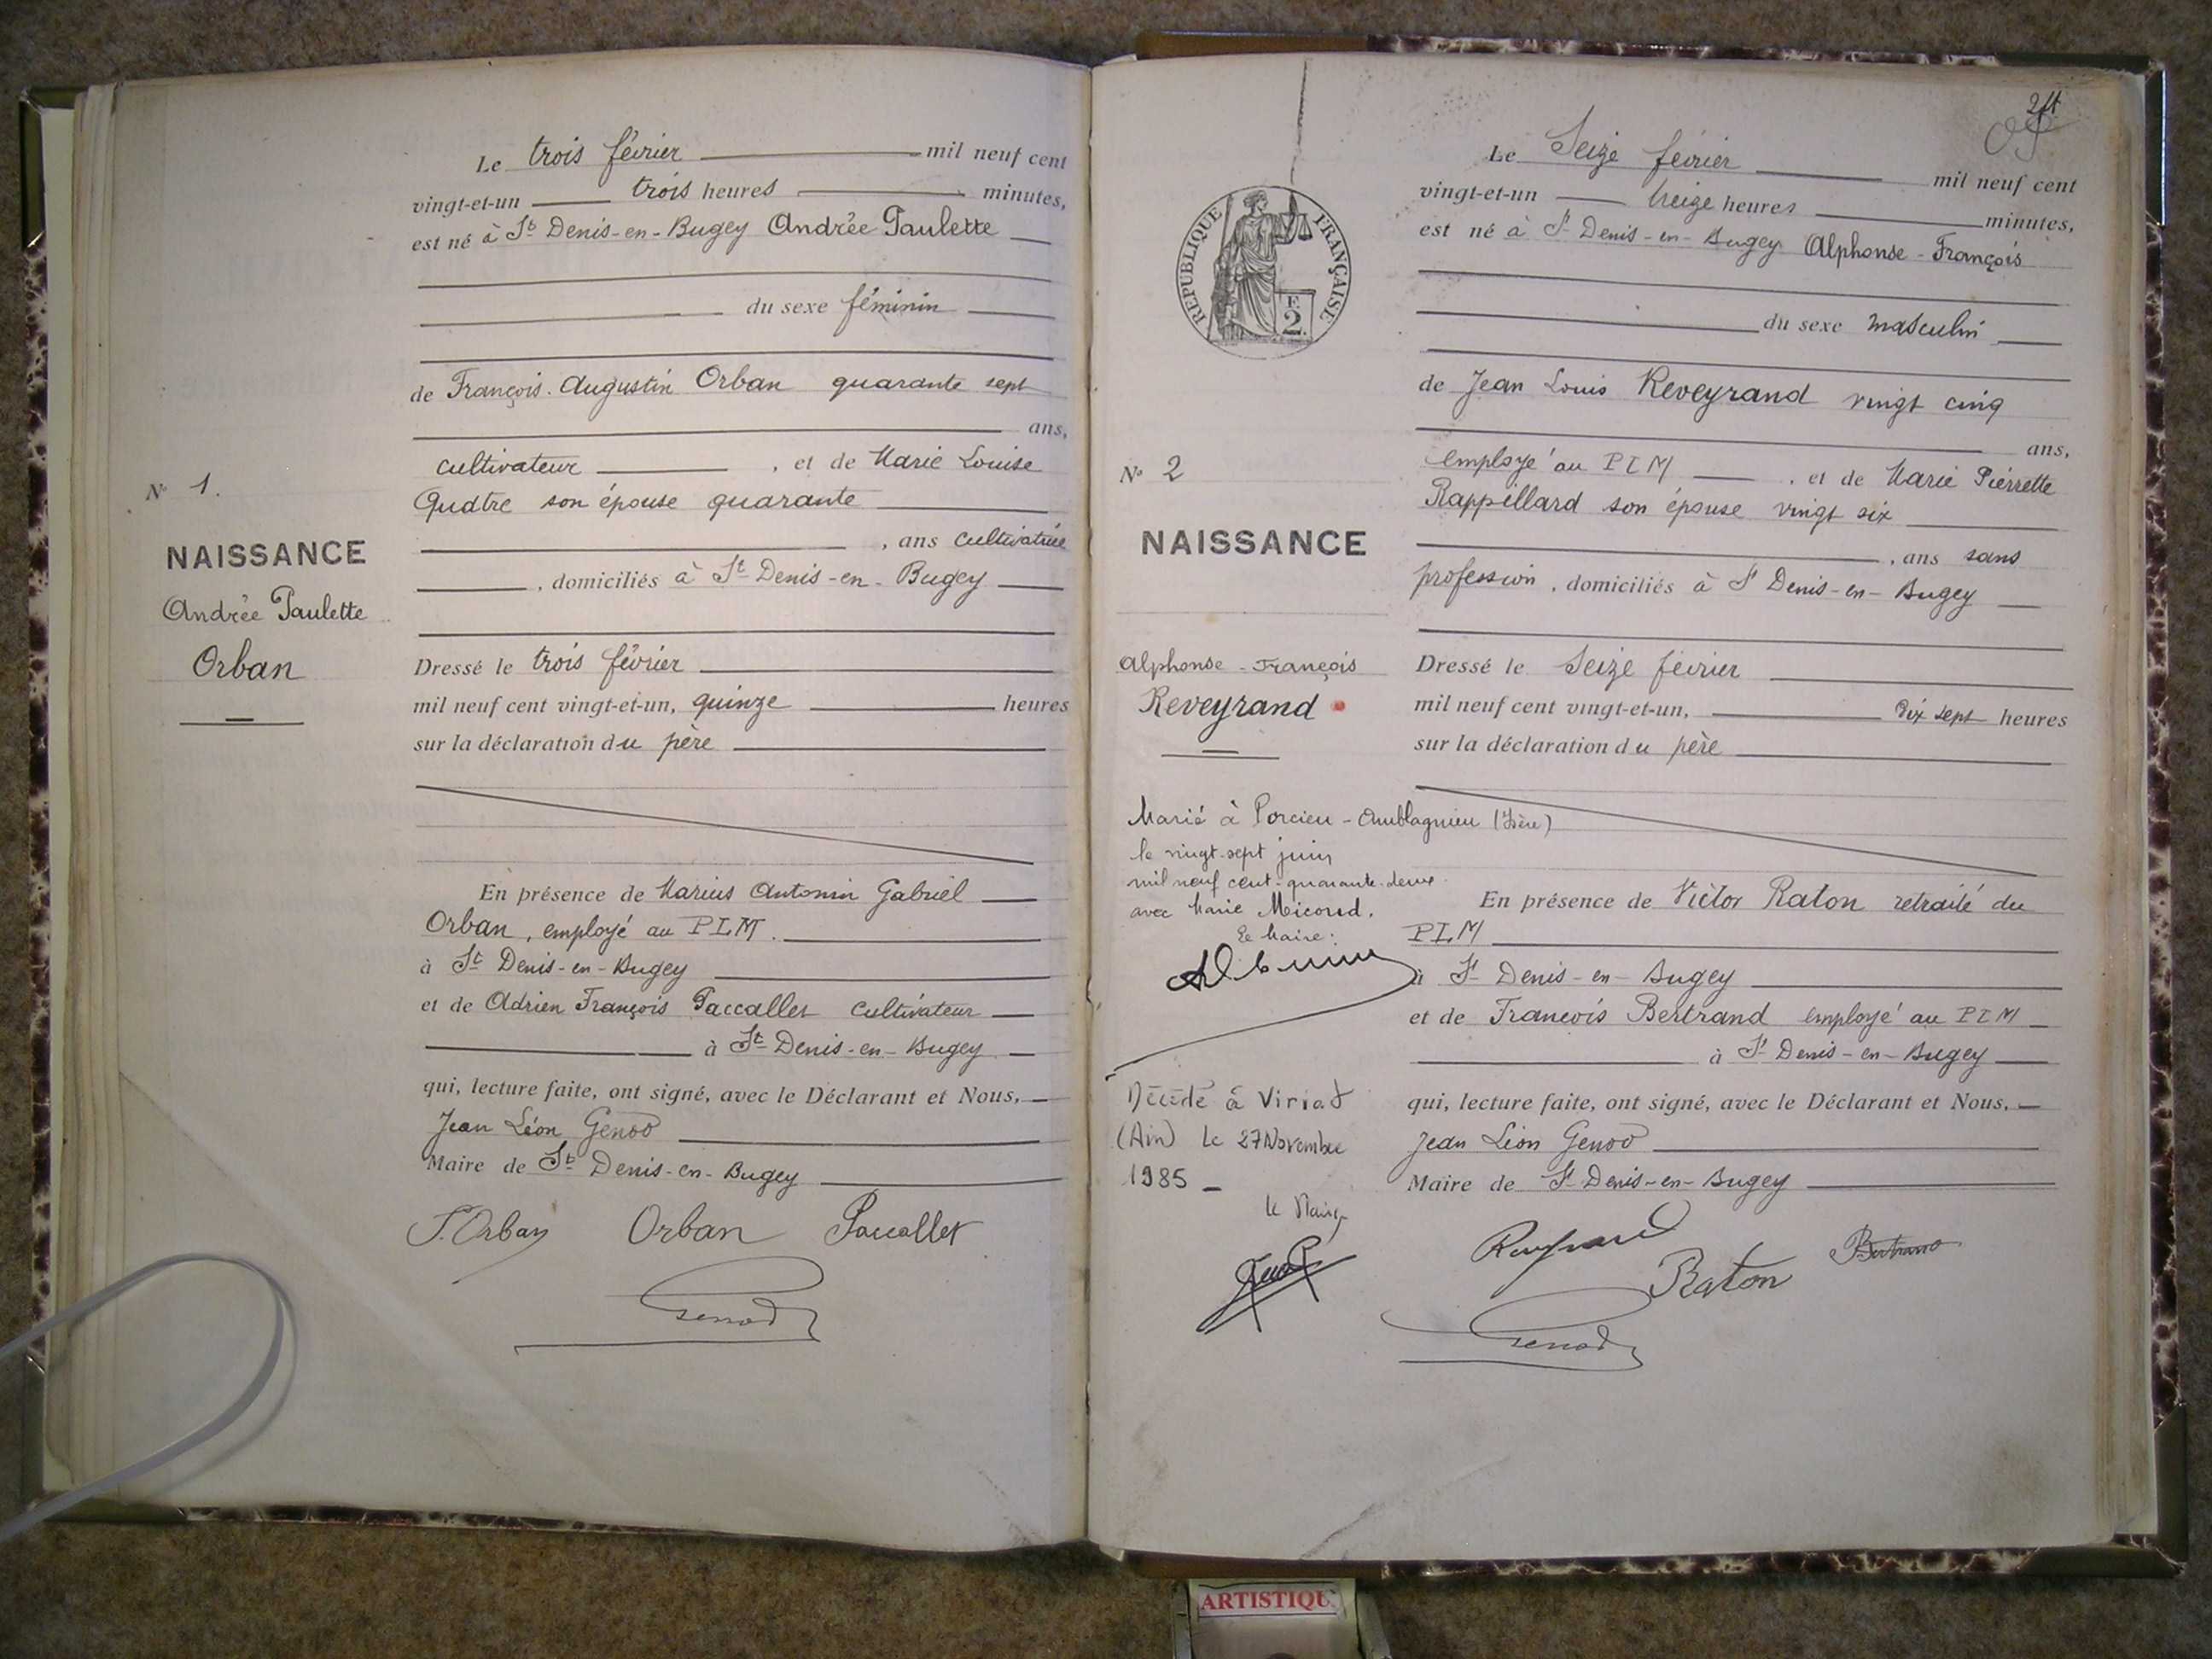 Le trois février mil neuf cent
vingt-et-un trois heures minutes,
est né à St Denis-en-Bugey Andrée Paulette
du sexe féminin
de François-Augustin Orban quarante sept
ans,
cultivateur , et de Marie Louise
Quatre son épouse quarante
, ans cultivatrice
, domiciliés à St Denis-en-Bugey
N° 1.
NAISSANCE
Andrée Paulette
Orban
Dressé le trois février
mil neuf cent vingt-et-un, quinze heures
sur la déclaration du père
En présence de Marius Antonin Gabriel
Orban, employé au PLM.
à St Denis-en-Bugey
et de Adrien François Paccallet cultivateur
à St Denis-en-Bugey
qui, lecture faite, ont signé, avec le Déclarant et Nous,
Jean Léon Genod
Maire de St Denis-en-Bugey
Orban Paccallet
Genod
REPUBLIQUE FRANÇAISE
F.
2.
Le Seize février mil neuf cent
vingt-et-un treize heures minutes,
est né à St Denis-en-Bugey Alphonse-François
du sexe masculin
de Jean Louis Reveyrand vingt cinq
ans,
employé au PLM , et de Marie Pierrette
Rappillard son épouse vingt six
, ans sans
profession, domiciliés à St Denis-en-Bugey
N° 2
NAISSANCE
Alphonse-François
Reveyrand
Dressé le Seize février
mil neuf cent vingt-et-un, dix sept heures
sur la déclaration du père
Marié à Porcieu-Amblagnieu (Isère)
le vingt-sept juin
mil neuf cent quarante-deux
avec Marie Micoud.
Le Maire:
Décédé à Viriat
(Ain) le 27 Novembre
1985
le Maire
En présence de Victor Raton retraité du
PLM
à St Denis-en-Bugey
et de François Bertrand employé au PLM
à St Denis-en-Bugey
qui, lecture faite, ont signé, avec le Déclarant et Nous,
Jean Léon Genod
Maire de St Denis-en-Bugey
Reveyrand Raton Bertrand
Genod
ARTISTIQU